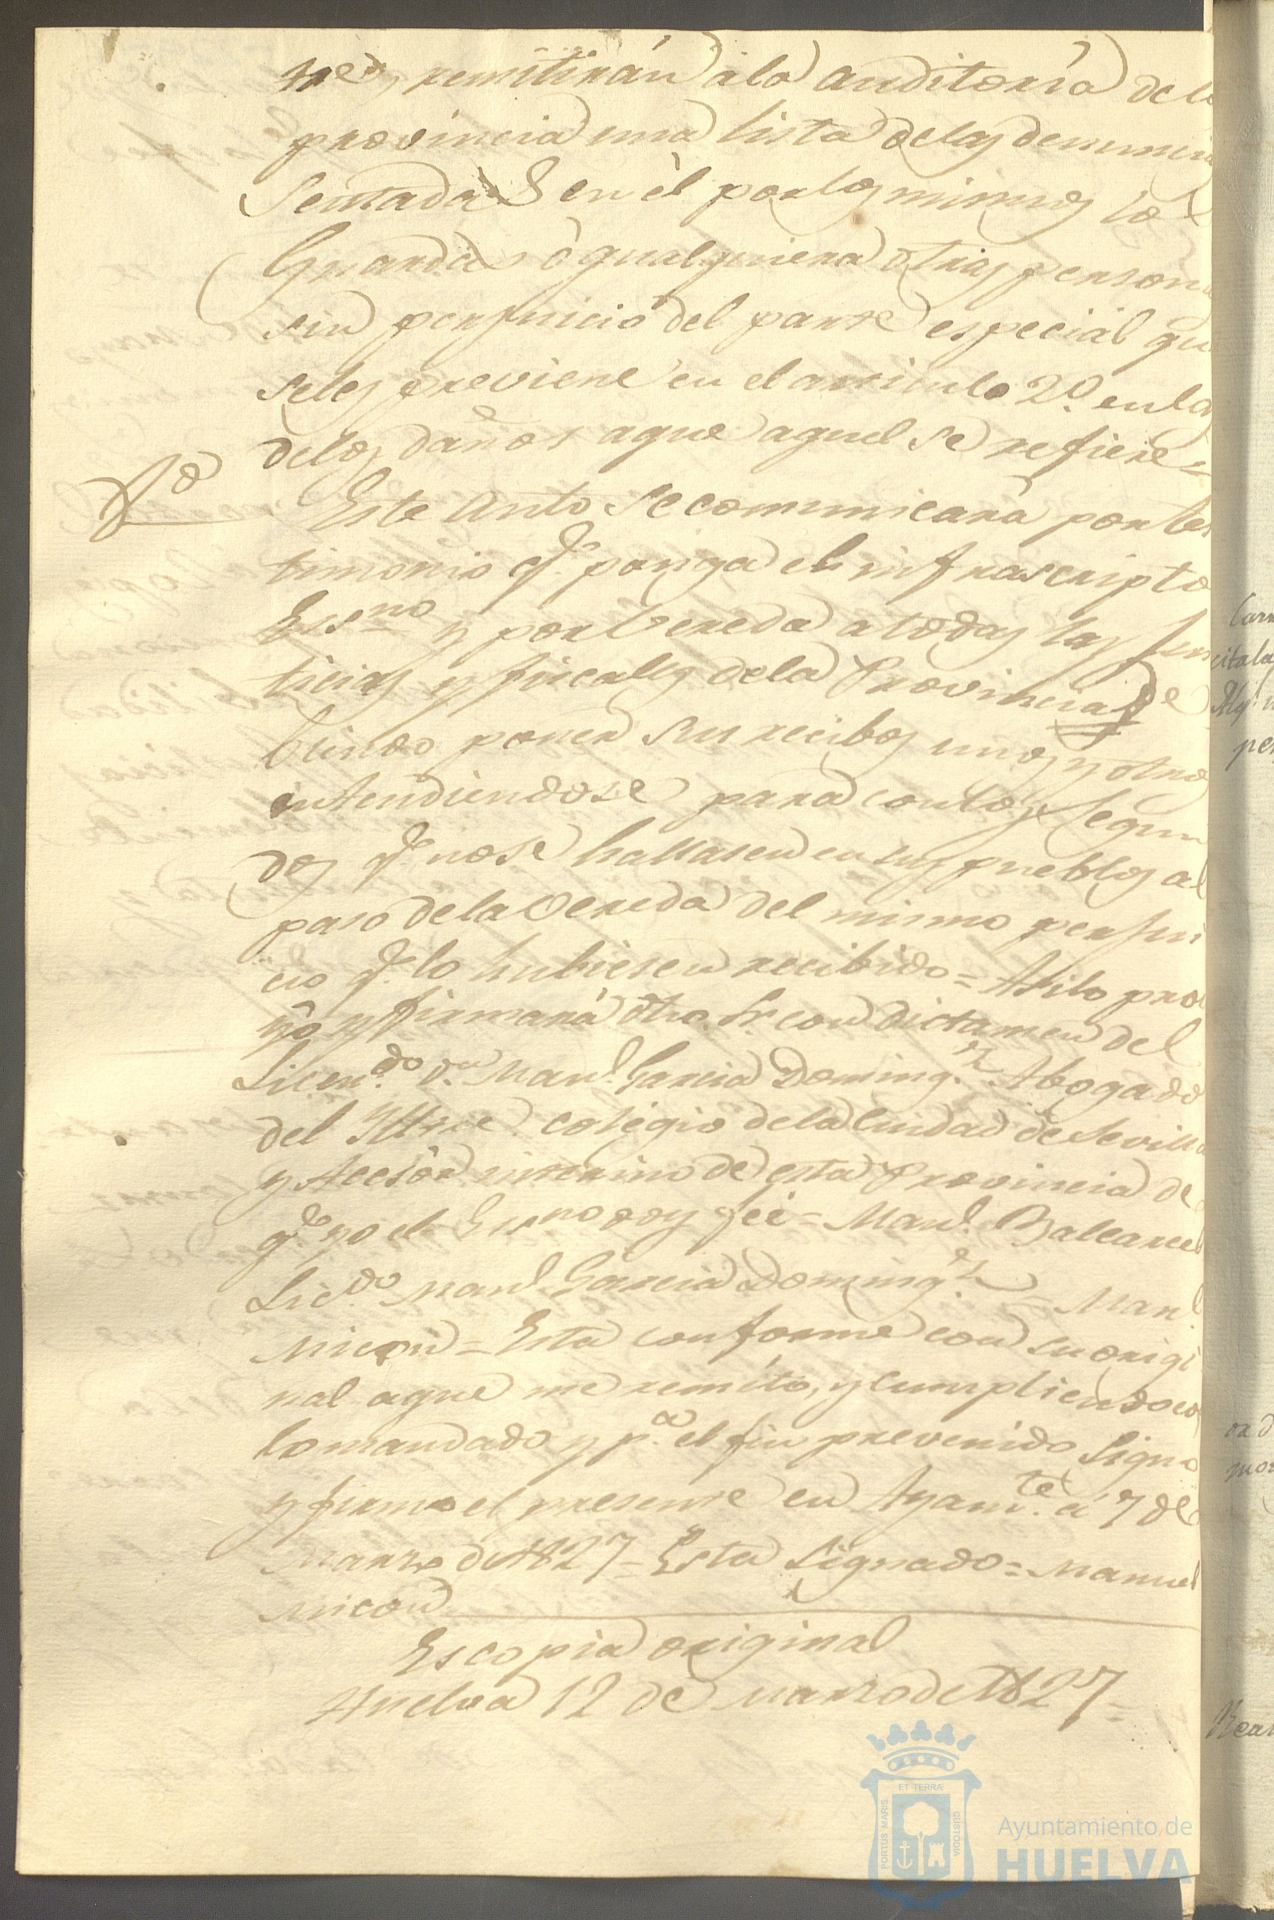 tres, remitirán a la auditoría de la
provincia una lista de las denuncias
sentadas en él por los mismos los
Guardas o qualquiera otras personas
sin perjuicio del parte especial que
se les previene en el articulo 2º. en los
delos daños aque aquel se refiere=
Este Auto se comunicará por tes
timonio qe. ponga el infrascripto
Essno y por Vereda a todas las Jus
ticias y fiscales dela Provincia de
biendo poner sus recibos unos y otros
entendiendose para con los segun
dos qe. nose hallasen en sus pueblos al
paso dela Vereda del mismo perjui
cio qe. lo hubiesen recibido = Asi lo prove
yó y firmará dho. Sr. con dictamen del
Licendo. Dn. Manl. Garcia Domingz. Abogado
del Yltre. colegio dela Ciudad de Sevilla
y Acesór interino de esta Provincia de
qe. yo el Essno doy fé = Manl. Balcarcel
Licdo. Manl. Garcia Domingz. = Manl.
Micon = Esta conforme con su origi
nal aque me remito, y cumpliendo con
lo mandado y pa. el fin prevenido signo
y firmo el presente en Ayamte. á 7 de
Marzo de 1827 = Esta signado = Manuel
Micon
Es copia original
Huelva 12 de Marzo de 1827=
Ayuntamiento de
HUELVA
PORTUS MARIS
ET TERRÆ
CUSTODIA